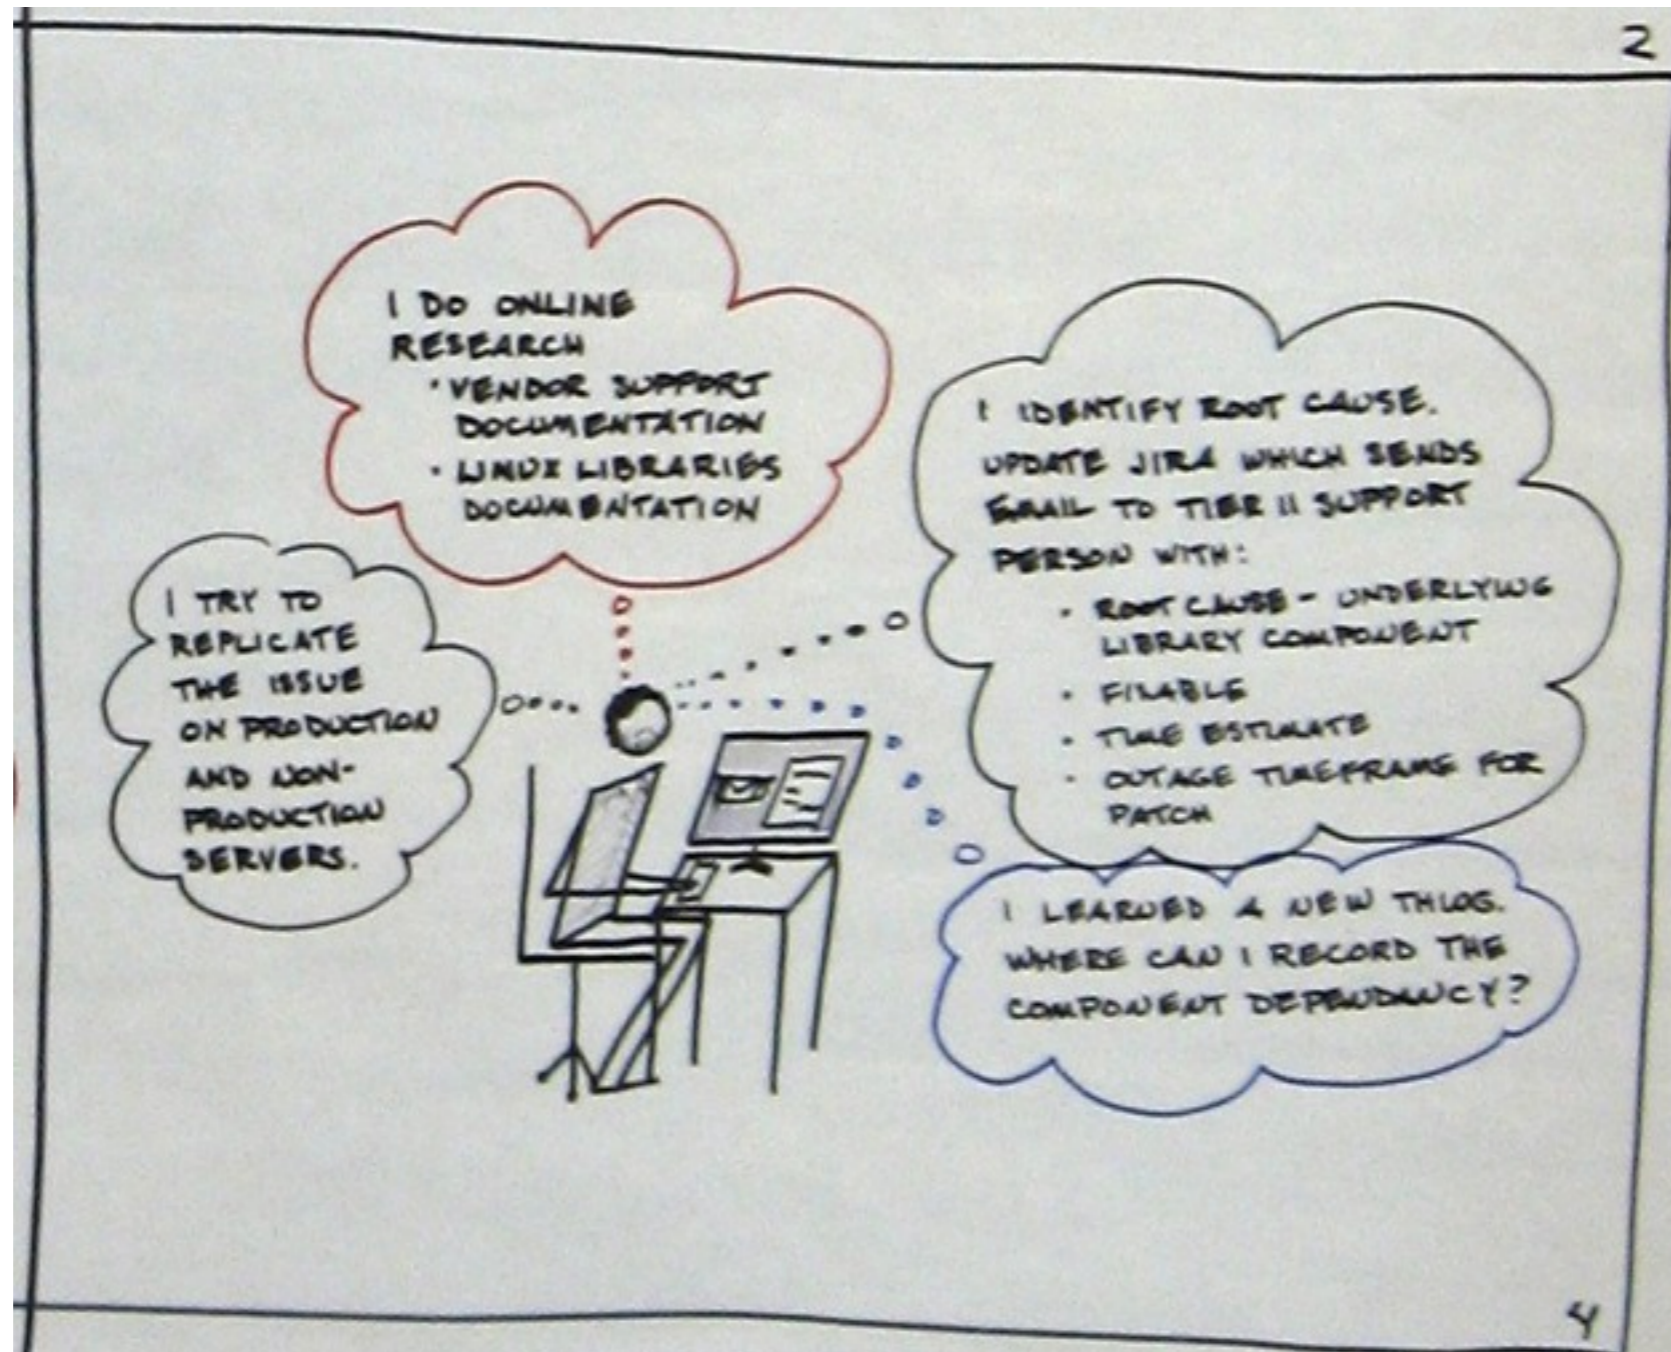 2
I DO ONLINE
RESEARCH
• VENDOR SUPPORT
DOCUMENTATION
• LINUX LIBRARIES
DOCUMENTATION
I TRY TO
REPLICATE
THE ISSUE
ON PRODUCTION
AND NON-
PRODUCTION
SERVERS.
I IDENTIFY ROOT CAUSE.
UPDATE JIRA WHICH SENDS
EMAIL TO TIER II SUPPORT
PERSON WITH:
• ROOT CAUSE - UNDERLYING
LIBRARY COMPONENT
• FIXABLE
• TIME ESTIMATE
• OUTAGE TIMEFRAME FOR
PATCH
I LEARNED A NEW THING.
WHERE CAN I RECORD THE
COMPONENT DEPENDANCY?
4